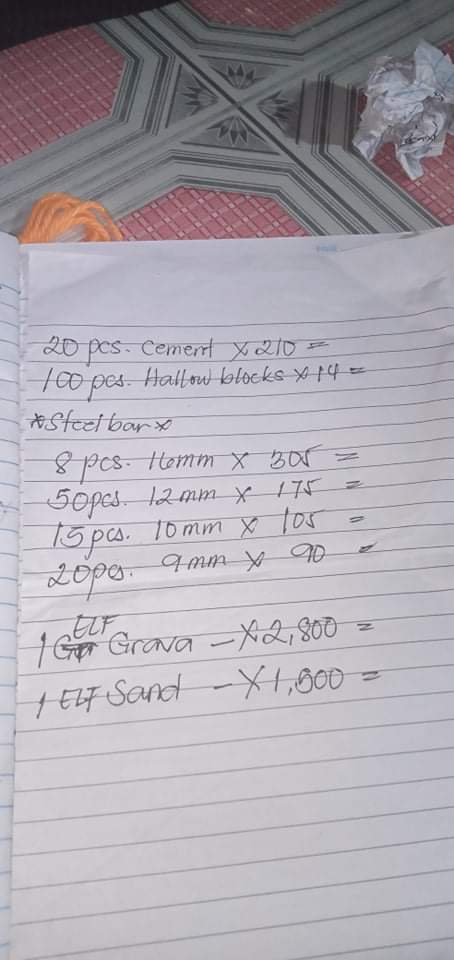 20 pcs. Cement x 210 =
100 pcs. Hallow blocks x 14 =
*Steel bar*
8 pcs. 16mm x 305 =
50pcs. 12mm x 175 =
15pcs. 10mm x 105 =
20pcs. 9mm x 90 =
1 ELF Grava - x 2,800 =
1 ELF Sand - x 1,500 =